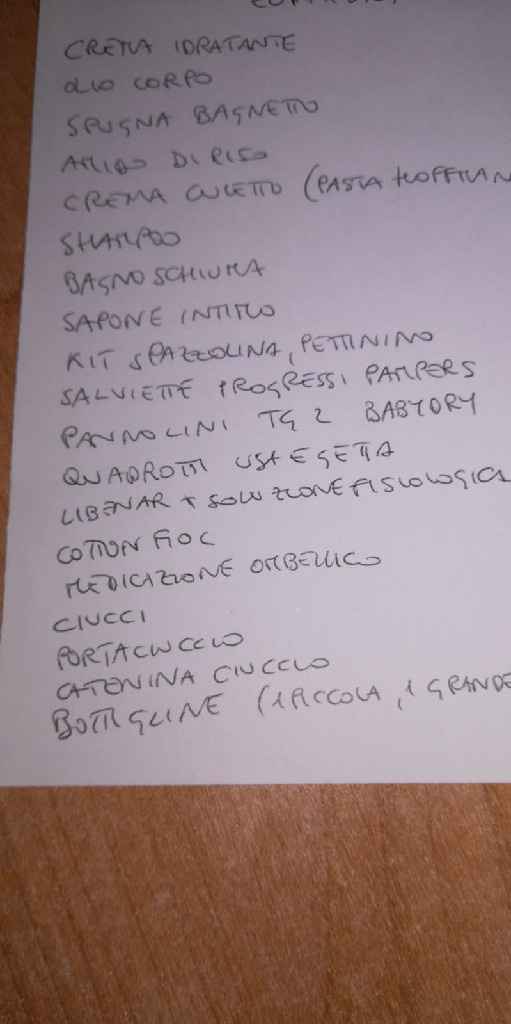 CREMA IDRATANTE
OLIO CORPO
SPUGNA BAGNETTO
AMIDO DI RISO
CREMA CULETTO (PASTA HOFFMAN
SHAMPOO
BAGNOSCHIUMA
SAPONE INTIMO
KIT SPAZZOLINA, PETTININO
SALVIETTE PROGRESSI PAMPERS
PANNOLINI TG 2 BABYDRY
QUADROTTI USA E GETTA
LIBENAR + SOLUZIONE FISIOLOGICA
COTTON FIOC
MEDICAZIONE OMBELLICO
CIUCCI
PORTACIUCCIO
CATENINA CIUCCIO
BOTTIGLINE (1 PICCOLA, 1 GRANDE